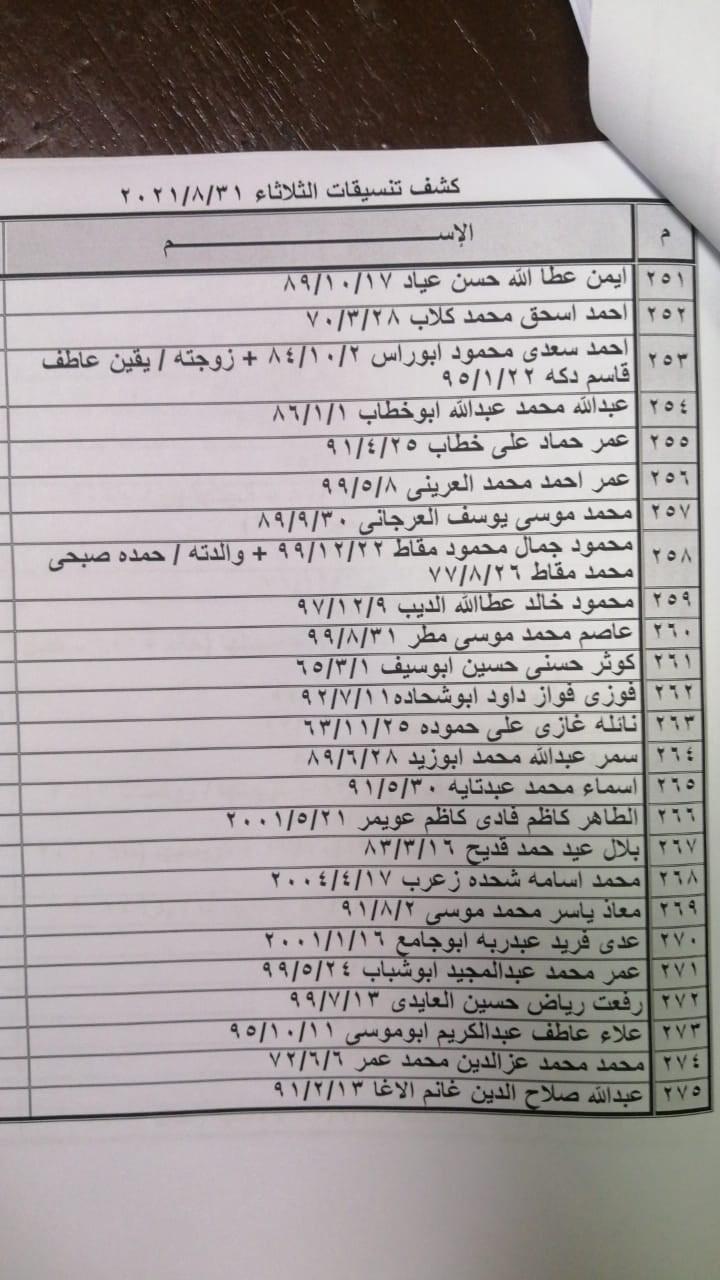 كشف تنسيقات الثلاثاء ٢٠٢١/٨/٣١
م الإســـــــــم
٢٥١ ايمن عطا الله حسن عياد ٨٩/١٠/١٧
٢٥٢ احمد اسحق محمد كلاب ٧٠/٣/٢٨
٢٥٣ احمد سعدى محمود ابوراس ٨٤/١٠/٢ + زوجته / يقين عاطف
قاسم دكه ٩٥/١/٢٢
٢٥٤ عبدالله محمد عبدالله ابوخطاب ٨٦/١/١
٢٥٥ عمر حماد على خطاب ٩١/٤/٢٥
٢٥٦ عمر احمد محمد العرينى ٩٩/٥/٨
٢٥٧ محمد موسى يوسف العرجانى ٨٩/٩/٣٠
٢٥٨ محمود جمال محمود مقاط ٩٩/١٢/٢٢ + والدته / حمده صبحى
محمد مقاط ٧٧/٨/٢٦
٢٥٩ محمود خالد عطاالله الديب ٩٧/١٢/٩
٢٦٠ عاصم محمد موسى مطر ٩٩/٨/٣١
٢٦١ كوثر حسنى حسين ابوسيف ٦٥/٣/١
٢٦٢ فوزى فواز داود ابوشحاده٩٢/٧/١١
٢٦٣ نائله غازى على حموده ٦٣/١١/٢٥
٢٦٤ سمر عبدالله محمد ابوزيد ٨٩/٦/٢٨
٢٦٥ اسماء محمد عبدتايه ٩١/٥/٣٠
٢٦٦ الطاهر كاظم فادى كاظم عويمر ٢٠٠١/٥/٢١
٢٦٧ بلال عيد حمد قديح ٨٣/٣/١٦
٢٦٨ محمد اسامه شحده زعرب ٢٠٠٤/٤/١٧
٢٦٩ معاذ ياسر محمد موسى ٩١/٨/٢
٢٧٠ عدى فريد عبدربه ابوجامع ٢٠٠١/١/١٦
٢٧١ عمر محمد عبدالمجيد ابوشباب ٩٩/٥/٢٤
٢٧٢ رفعت رياض حسين العايدى ٩٩/٧/١٣
٢٧٣ علاء عاطف عبدالكريم ابوموسى ٩٥/١٠/١١
٢٧٤ محمد محمد عزالدين محمد عمر ٧٢/٦/٦
٢٧٥ عبدالله صلاح الدين غانم الاغا ٩١/٢/١٣